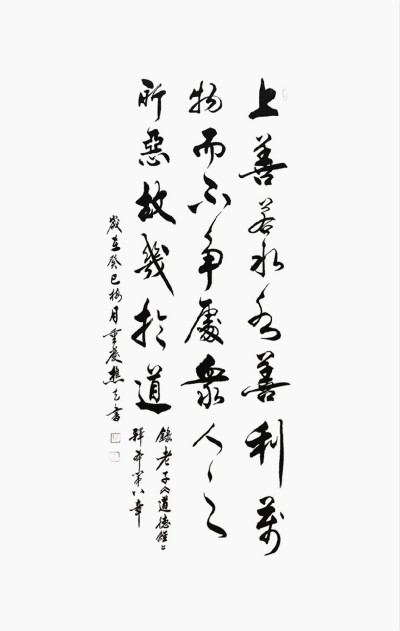 上善若水水善利萬
物而不争處衆人之
所惡故幾於道
錄老子《道德經》
輯本第八章
歲在癸巳梅月重慶
書